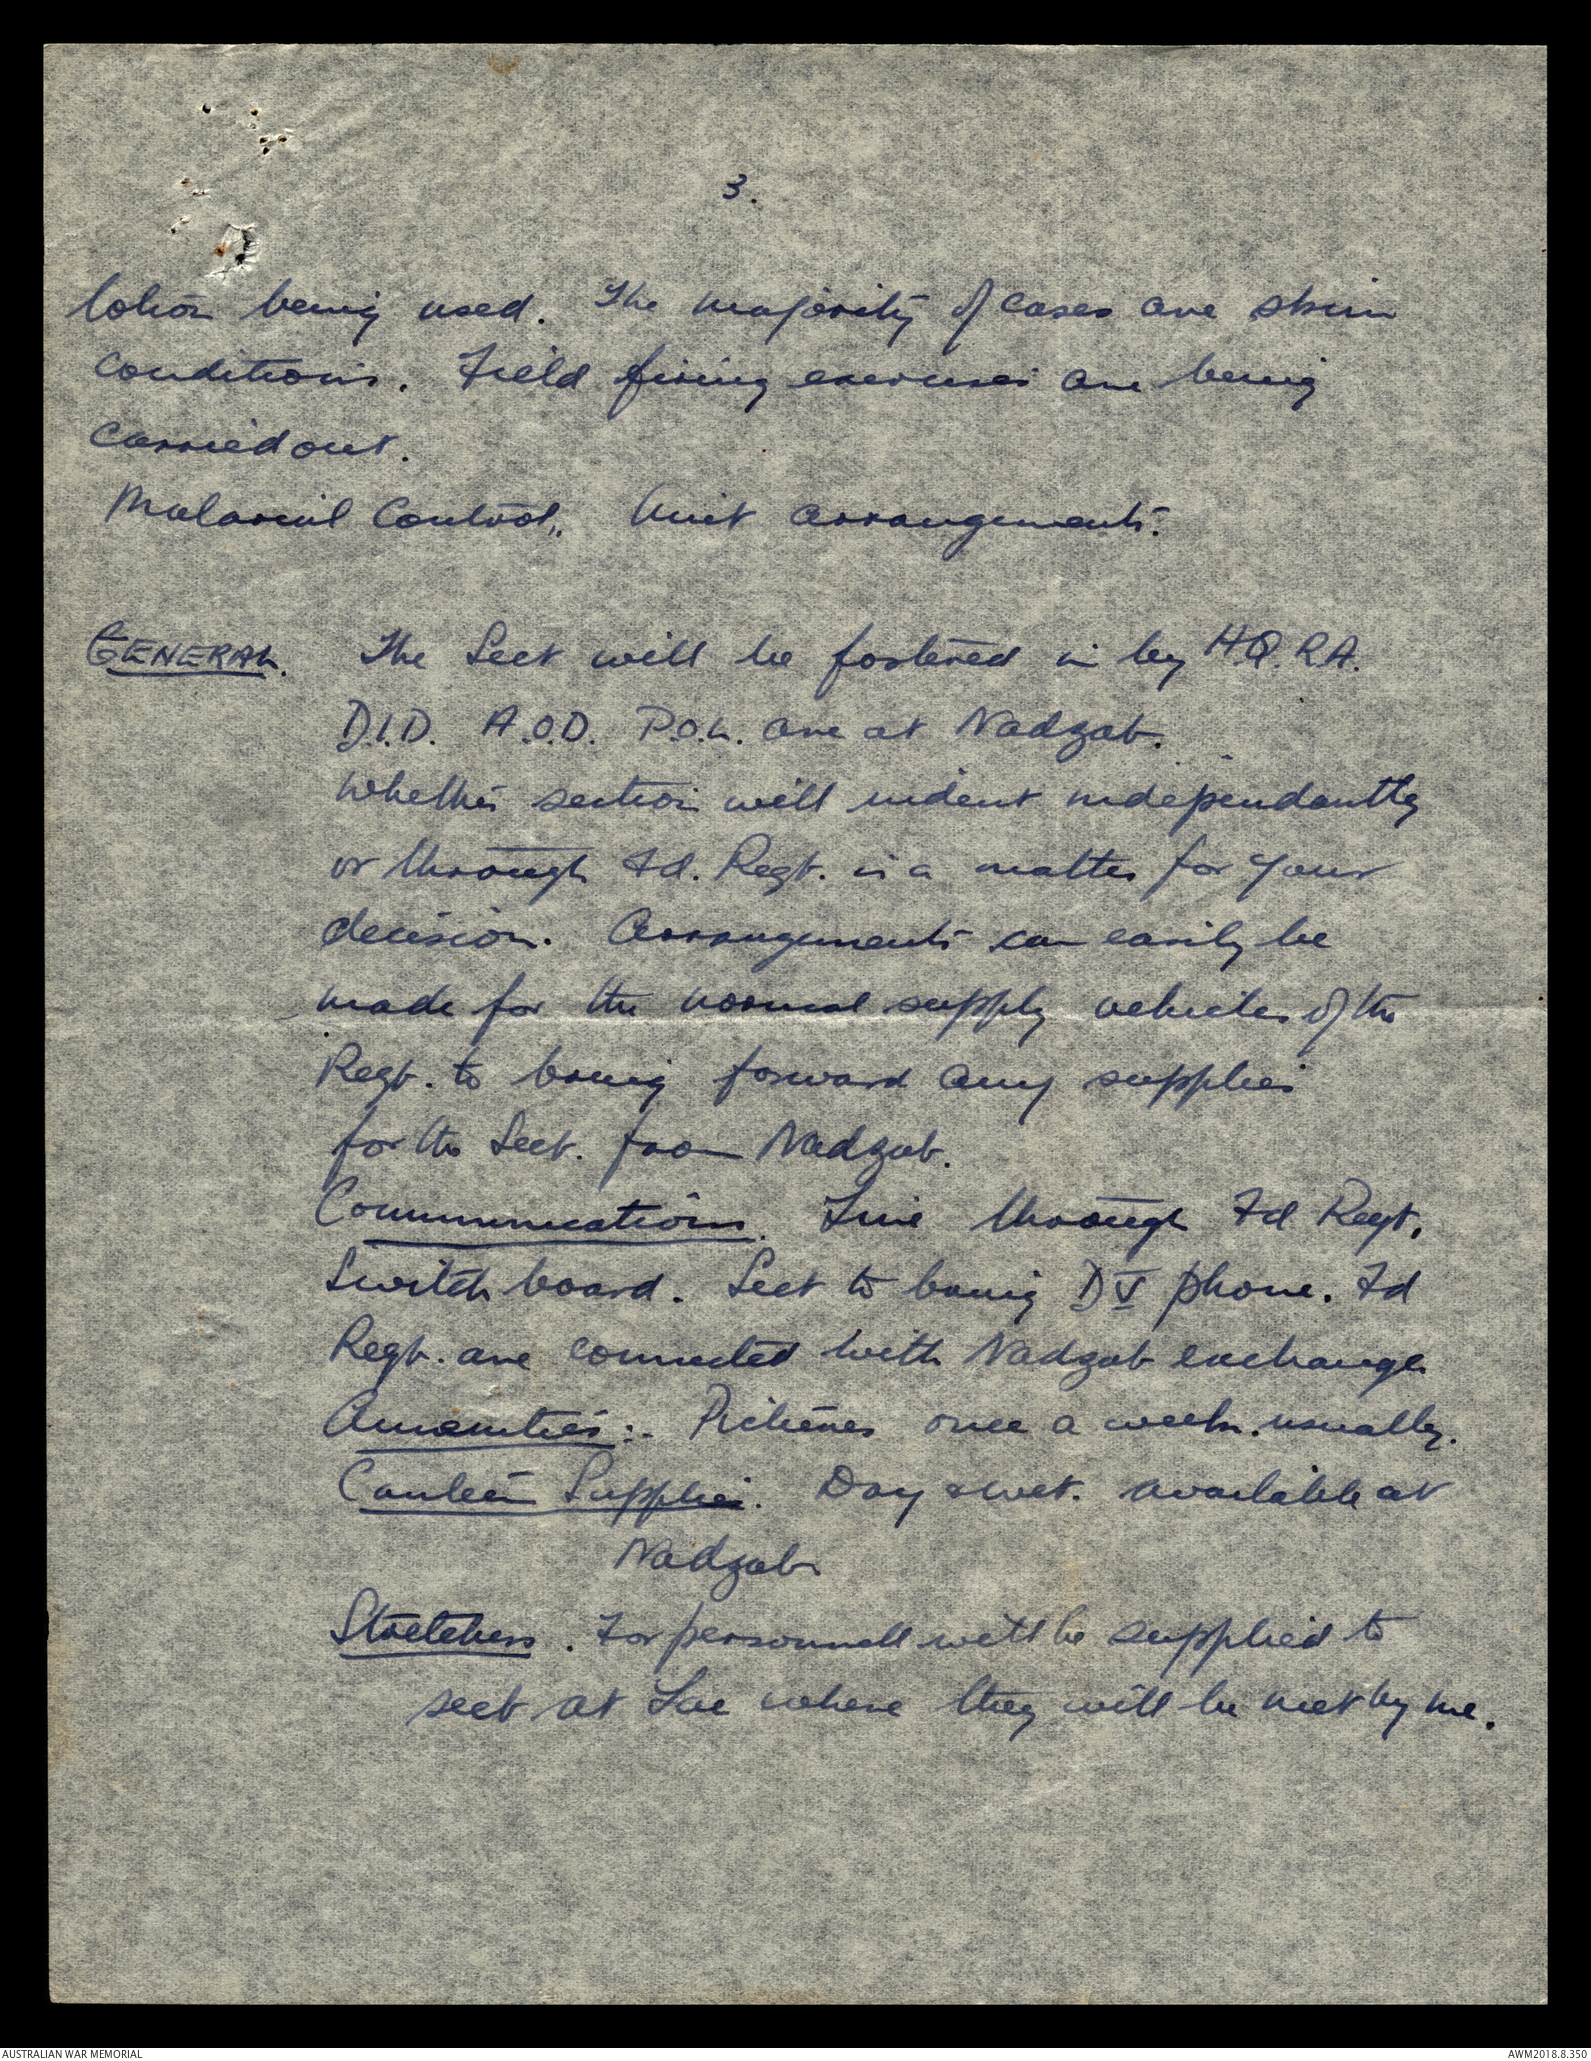 3.
lotion being used. The majority of cases are skin
conditions. Field firing exercises are being
carried out.
Malarial Control,, Unit arrangements.
GENERAL. The Sect will be fostered in by H.Q. R.A.
D.I.D. A.O.D. P.O.L. are at Nadzab.
Whether section will indent independantly
or through Fd. Regt. is a matter for your
decision. Arrangements can easily be
made for the normal supply vehicles of the
Regt. to bring forward any supplies
for the Sect. from Nadzab.
Communications. Line through Fd Regt.
Switch board. Sect to bring D V phone. Fd
Regt. are connected with Nadzab exchange
Amenities:- Pictures once a week. usually.
Canteen Supplies. Dry & wet. available at
Nadzab
Stretchers. For personnell will be supplied to
sect at Lae where they will be met by me.
AUSTRALIAN WAR MEMORIAL
AWM2018.8.350